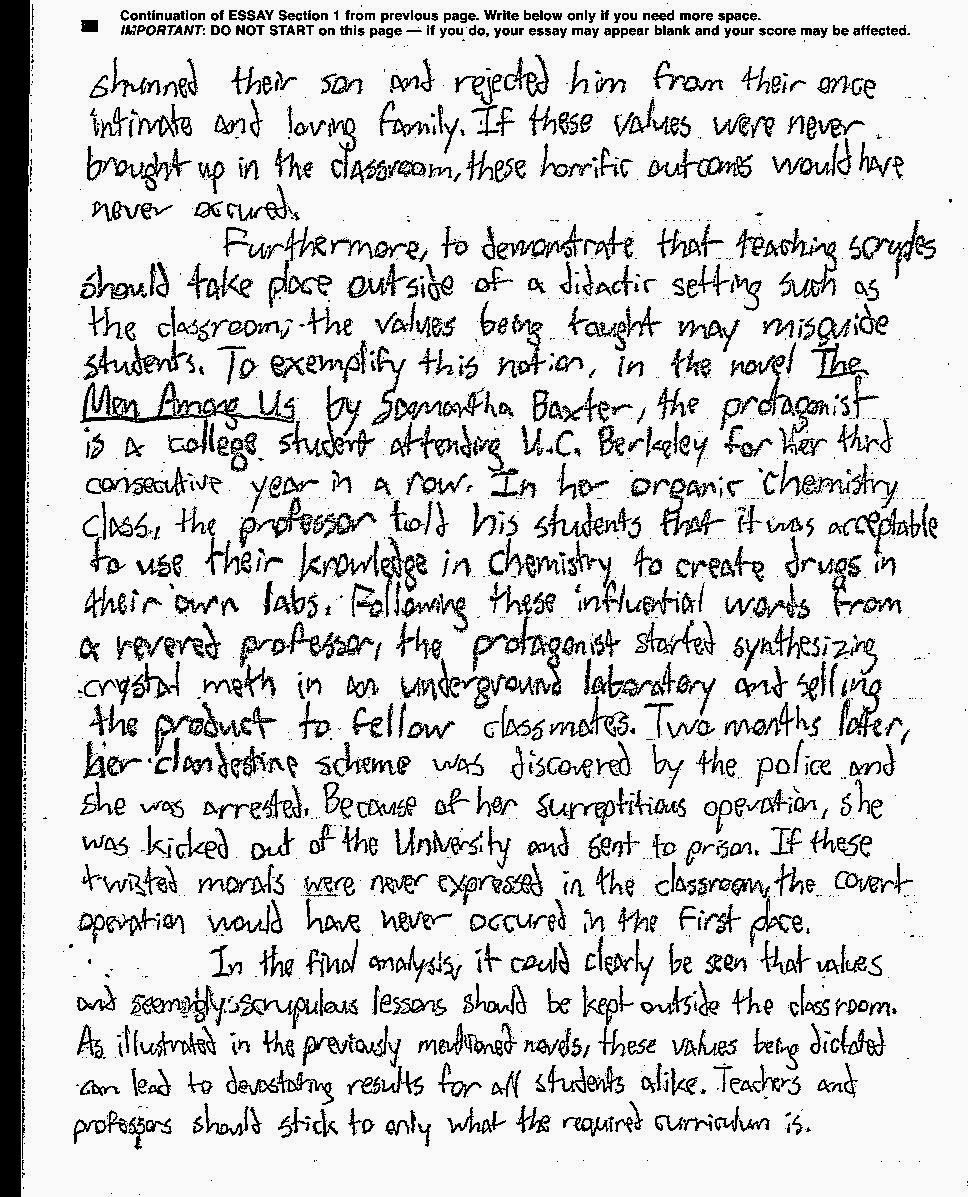 Continuation of ESSAY Section 1 from previous page. Write below only if you need more space.
IMPORTANT: DO NOT START on this page — if you do, your essay may appear blank and your score may be affected.
shunned their son and rejected him from their once
intimate and loving family. If these values were never
brought up in the classroom, these horrific outcomes would have
never occured.
Furthermore, to demonstrate that teaching scruples
should take place outside of a didactic setting such as
the classroom, the values being taught may misguide
students. To exemplify this notion, in the novel The
Men Among Us by Samantha Baxter, the protagonist
is a college student attending U.C. Berkeley for her third
consecutive year in a row. In her organic chemistry
class, the professor told his students that it was acceptable
to use their knowledge in chemistry to create drugs in
their own labs. Following these influential words from
a revered professor, the protagonist started synthesizing
crystal meth in an underground laboratory and selling
the product to fellow classmates. Two months later,
her clandestine scheme was discovered by the police and
she was arrested. Because of her surreptitious operation, she
was kicked out of the University and sent to prison. If these
twisted morals were never expressed in the classroom, the covert
operation would have never occured in the first place.
In the final analysis, it could clearly be seen that values
and seemingly scrupulous lessons should be kept outside the classroom.
As illustrated in the previously mentioned novels, these values being dictated
can lead to devastating results for all students alike. Teachers and
professors should stick to only what the required curriculum is.